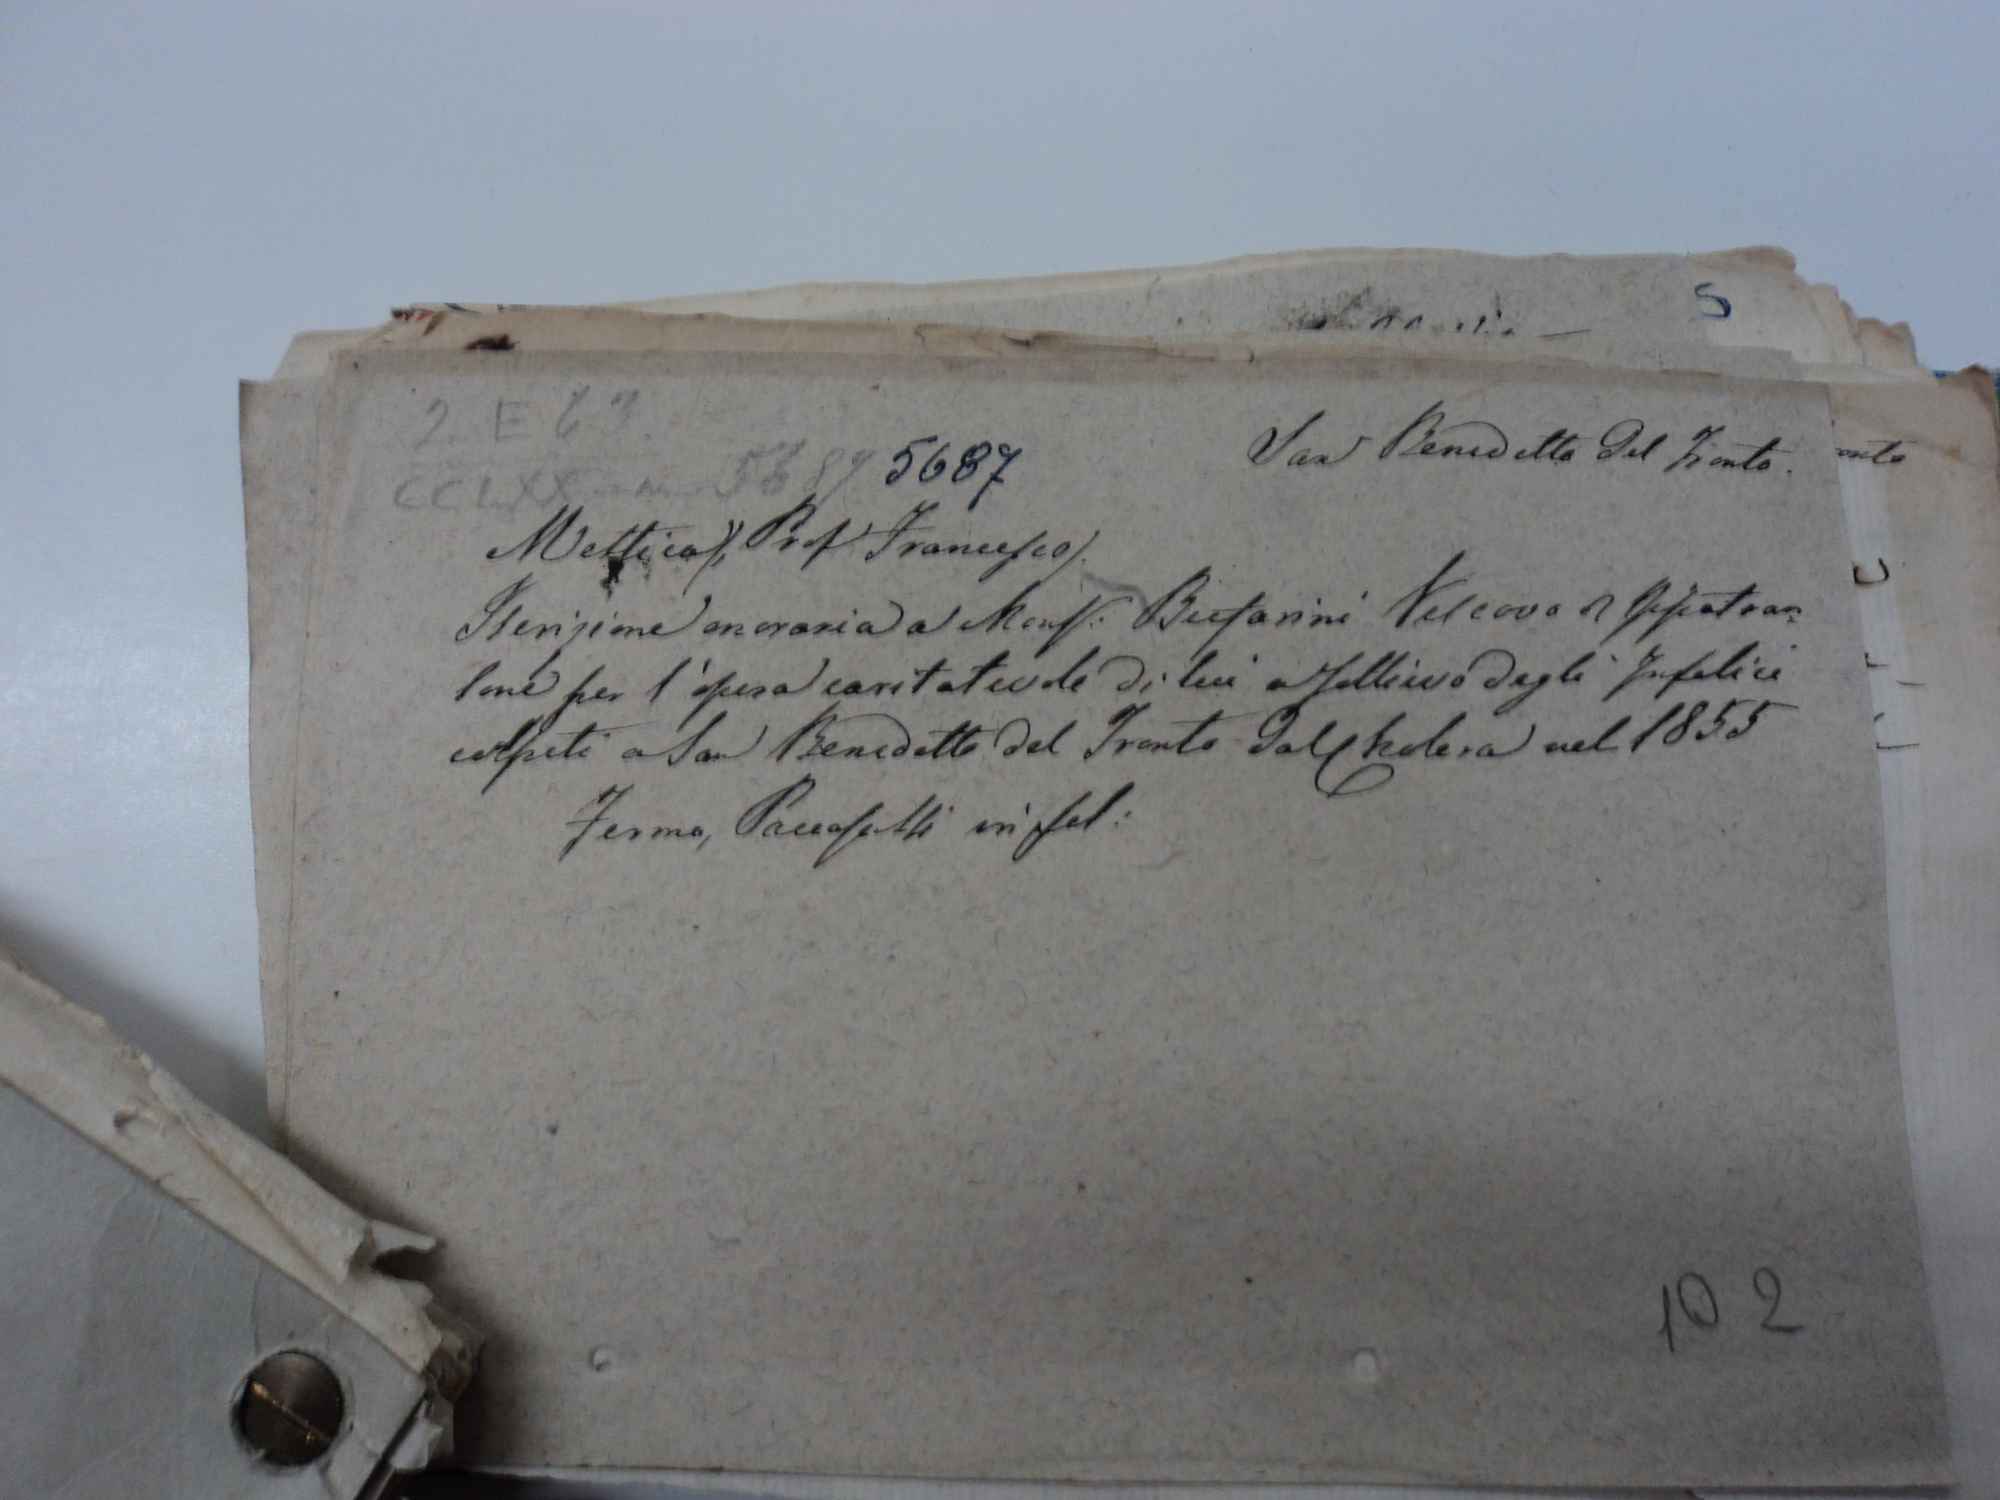 2. E 69.
San Benedetto del Tronto.
CCLXX 5687 5687
Mettica, Prof Francesco.
Iscrizione onoraria a Mons: Bufarini Vescovo di Ripatran=
sone per l'opera caritatevole di lui a sollievo degli Infelici
colpiti a San Benedetto del Tronto dal Cholera nel 1855
Fermo, Paccasassi in fol:
102
5
onto